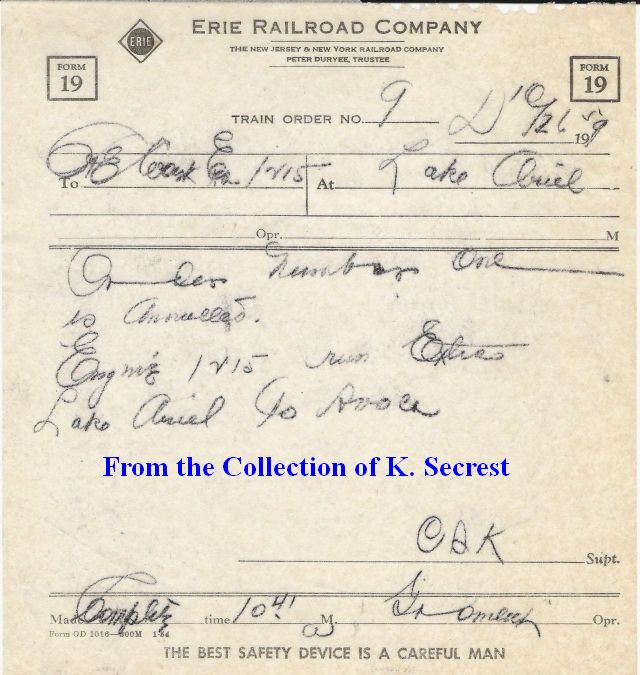 ERIE RAILROAD COMPANY
ERIE
THE NEW JERSEY & NEW YORK RAILROAD COMPANY
PETER DURYEE, TRUSTEE
FORM 19
FORM 19
TRAIN ORDER NO. 9
D 10/26 1959
To C&E Eng 1215 At Lake Ariel
Opr. M
Order Number One
is Annulled.
Engine 1215 run Extra
Lake Ariel To Avoca
From the Collection of K. Secrest
CDK Supt.
Made Complete time 10 41 M. Opr.
Form OD 1016—200M 1-54
THE BEST SAFETY DEVICE IS A CAREFUL MAN